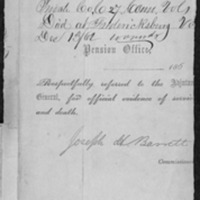 Privt. Co. C 27 Conn. Vols
Died at Fredericksburg Va
Dec 1862 wounds
Pension Office,
186
Respectfully referred to the Adjutant
General, for official evidence of service
and death.
Joseph H. Barrett
Commissioner